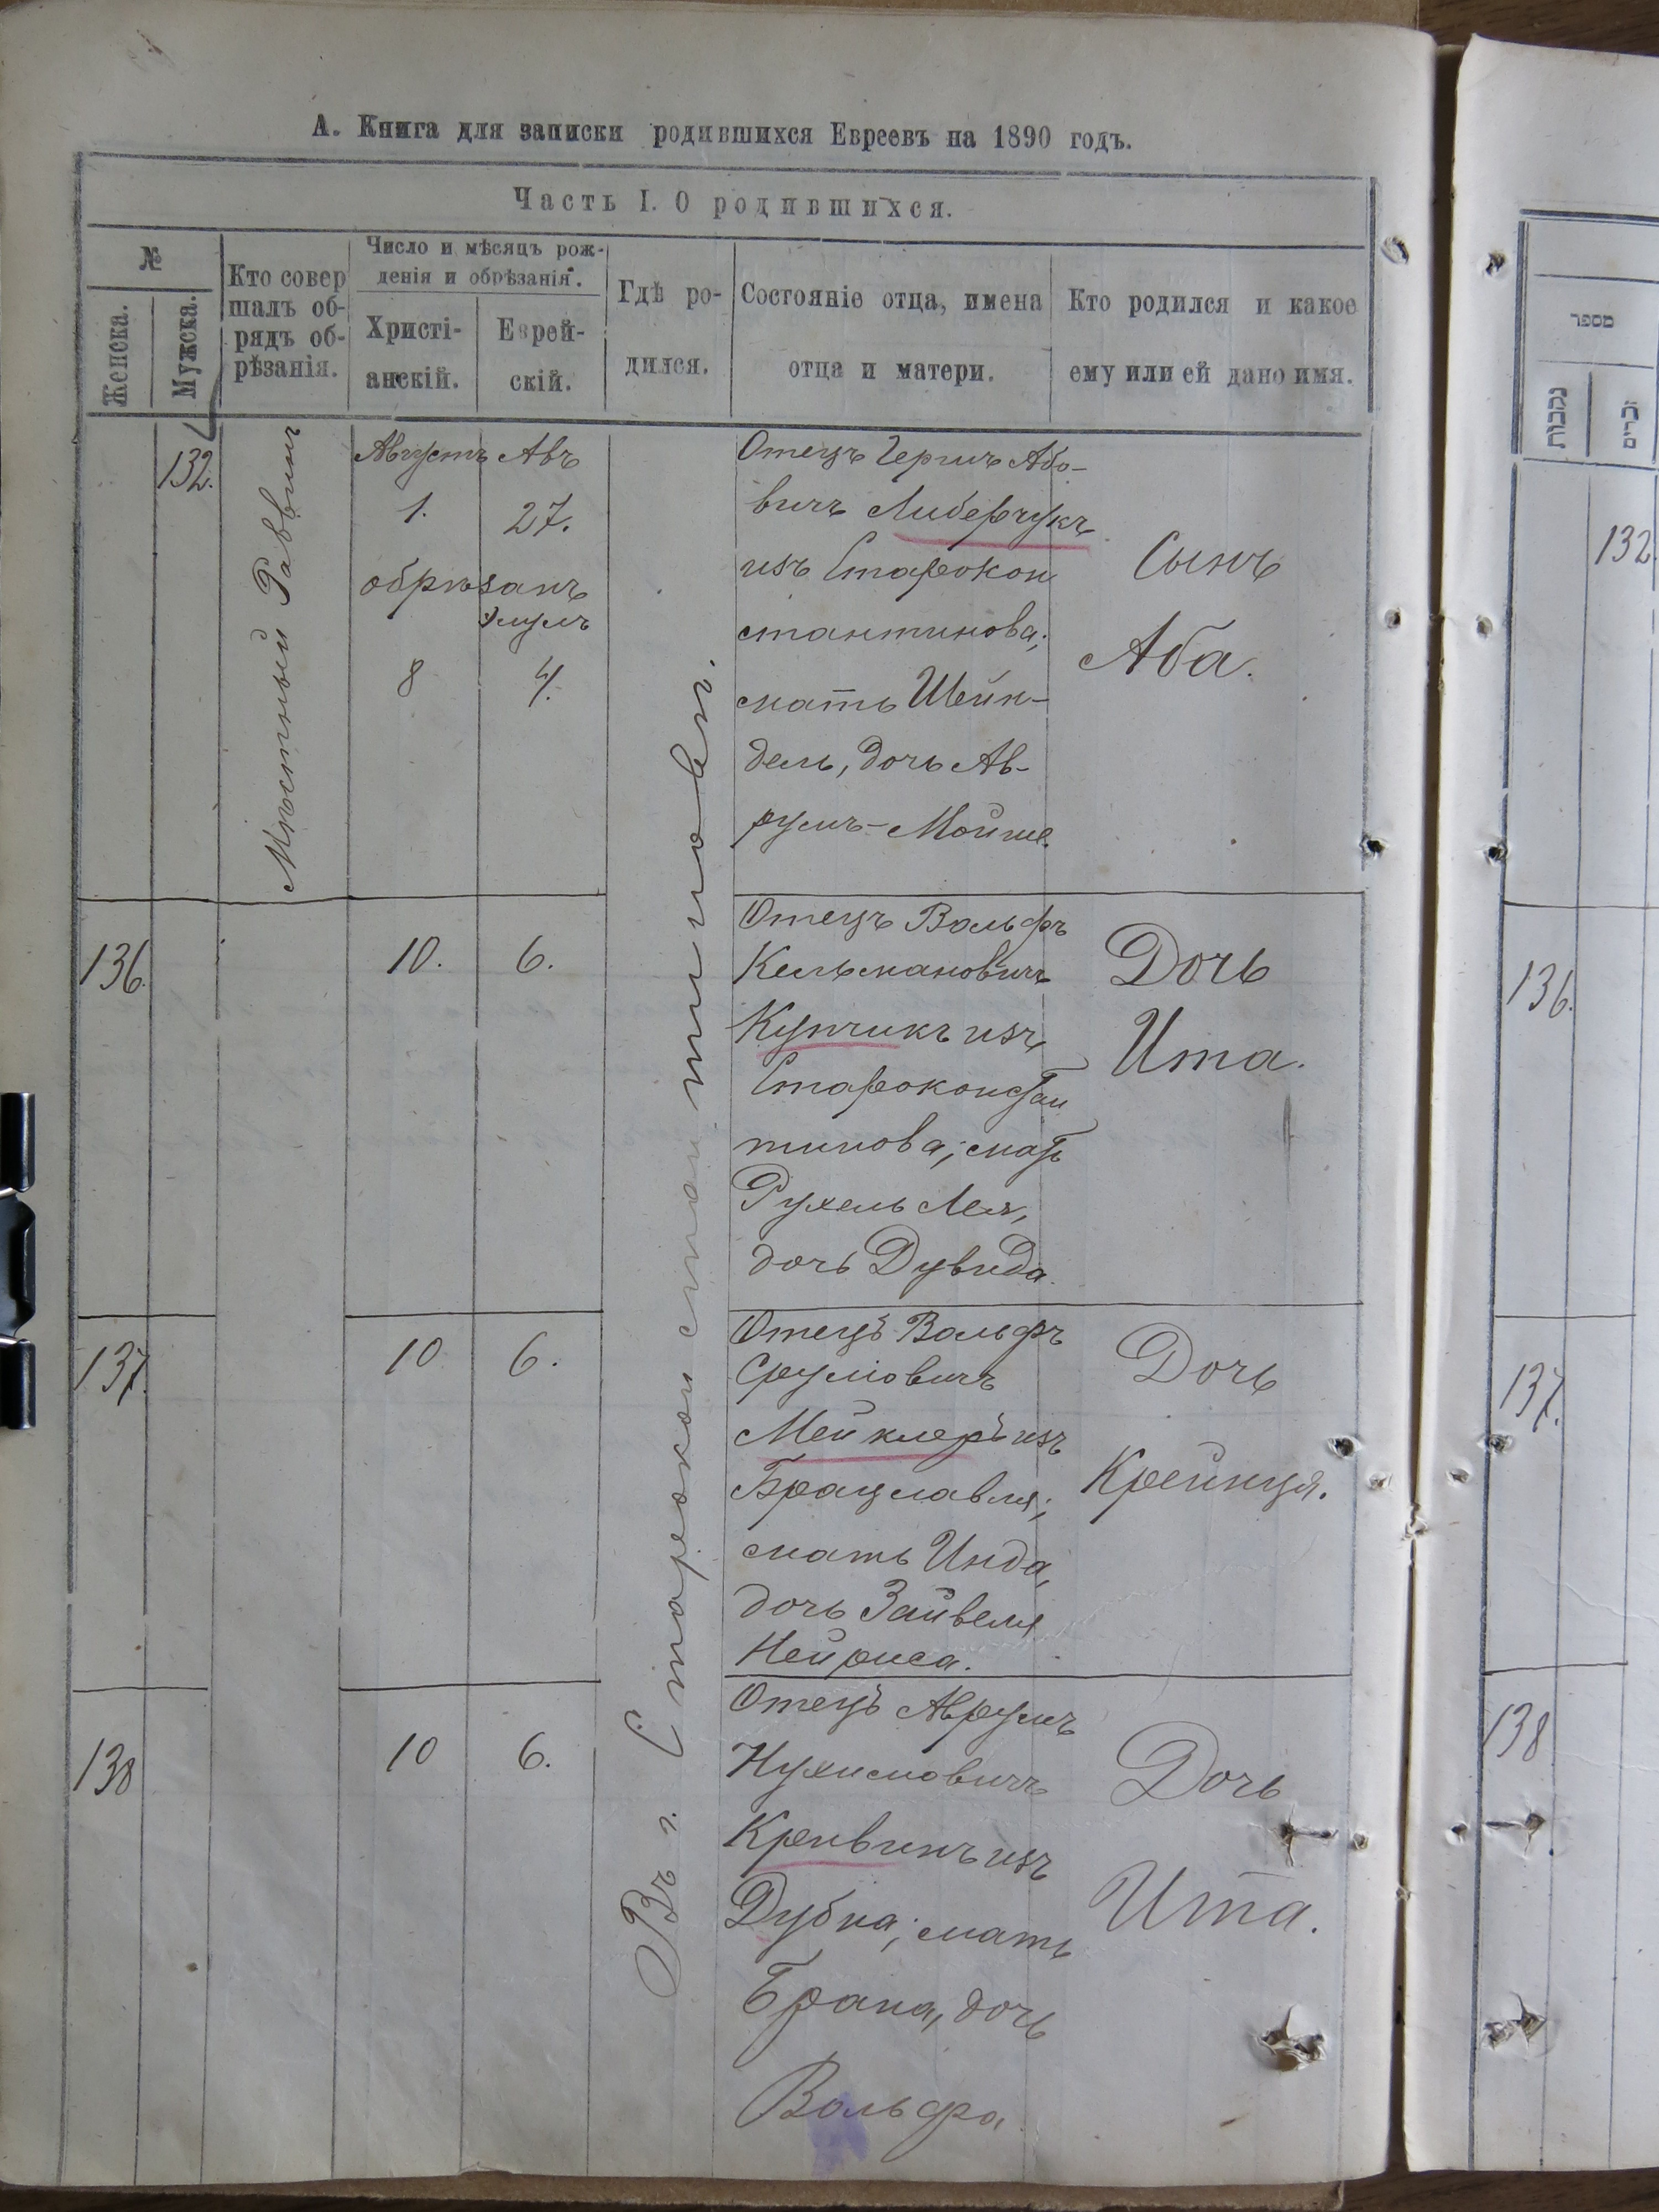 А. Книга для записки родившихся Евреевъ на 1890 годъ.
Часть I. О родившихся.
№
Женска.
Мужска.
Кто совер
шалъ об-
рядъ об-
рѣзанія.
Число и мѣсяцъ рож-
денія и обрѣзанія.
Христі-
анскій.
Еврей-
скій.
Гдѣ ро-
дился.
Состояніе отца, имена
отца и матери.
Кто родился и какое
ему или ей дано имя.
132.
Мѣстный Раввинъ
Августъ Авъ
1. 27.
обрѣзанъ
Элулъ
8 4.
Въ г. Староконстантиновѣ.
Отецъ Гершъ Або-
вичъ Либерчукъ
изъ Старокон
стантинова;
мать Шейн-
дель, дочь Ав-
румъ-Мойше.
Сынъ
Аба.
136.
10. 6.
Отецъ Вольфъ
Кельмановичъ
Купчикъ изъ
Староконстан
тинова; мать
Рухель Лея,
дочь Дувида.
Дочь
Ита.
137.
10 6.
Отецъ Вольфъ
Срулiовичъ
Мейклеръ изъ
Брацлавля;
мать Инда,
дочь Зайвеля
Нейриса.
Дочь
Крейнця.
138
10 6.
Отецъ Аврумъ
Нухимовичъ
Кривинъ изъ
Дубна; мать
Брана, дочь
Вольфа
Дочь
Ита.
מספר
נקבות
זכרים
132
136.
137.
138